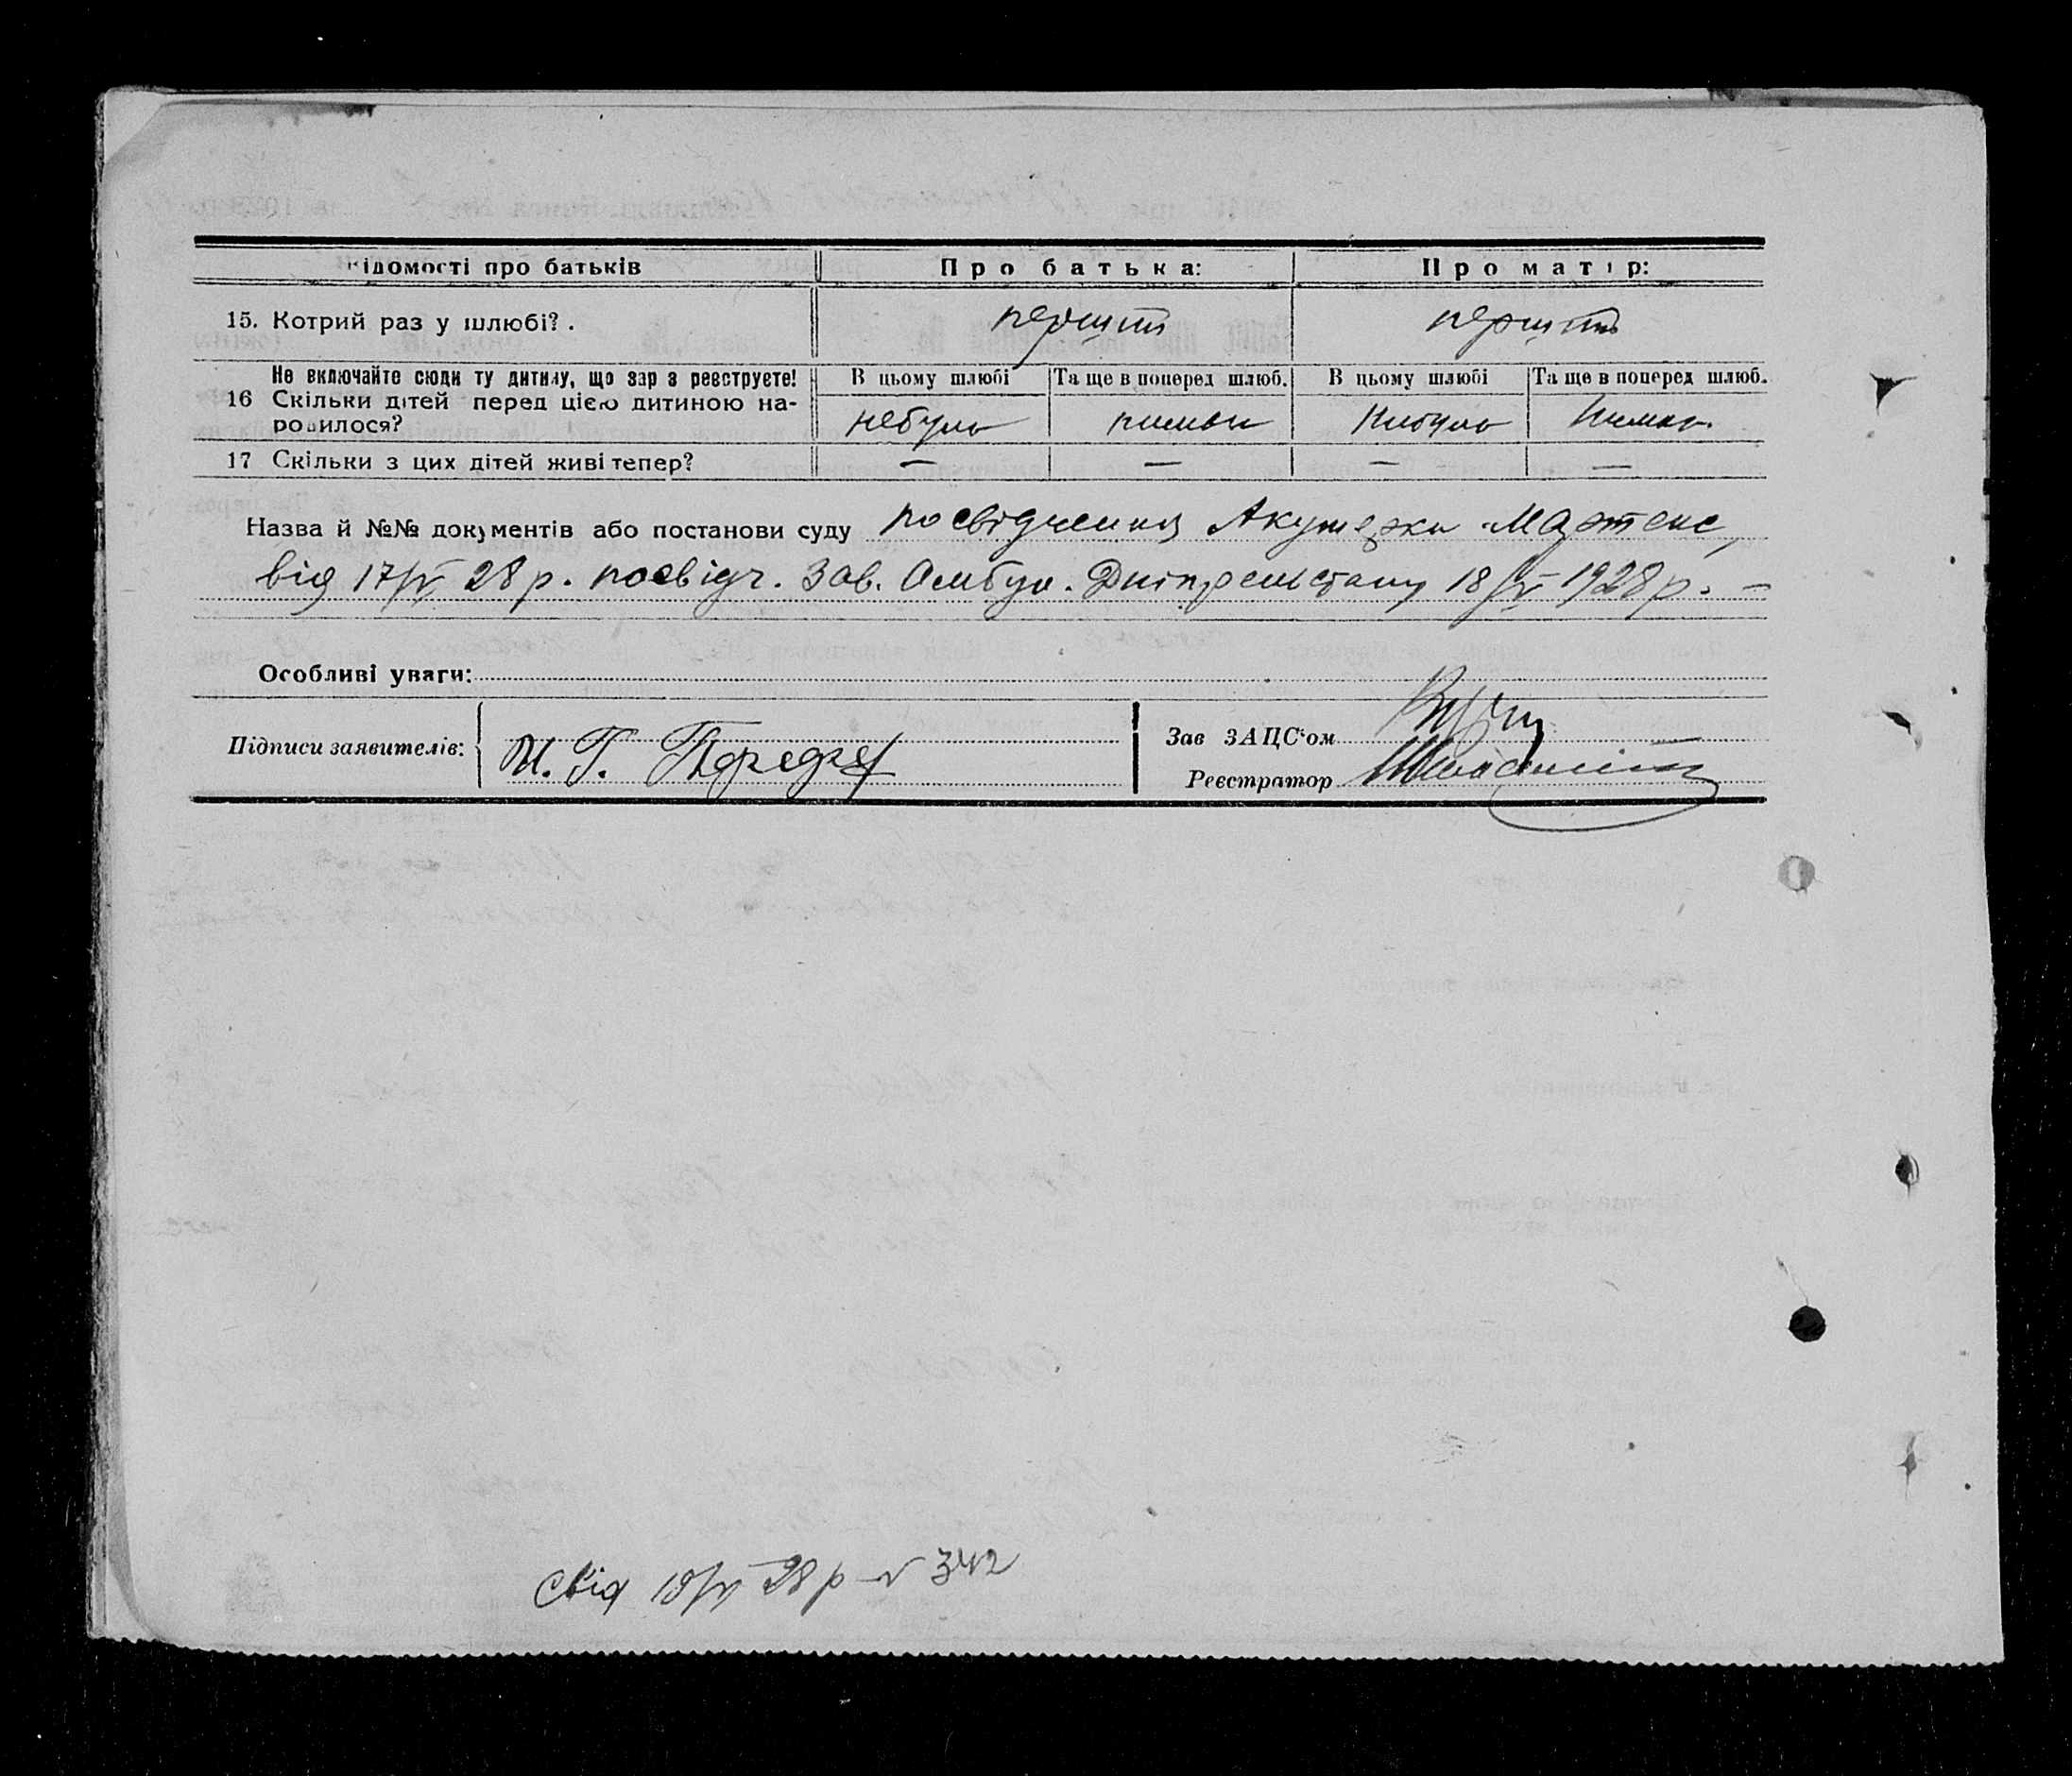 Відомості про батьків
Про батька:
Про матір:
15. Котрий раз у шлюбі?.
перший
перший
Не включайте сюди ту дитину, що зараз реєструєте!
16 Скільки дітей перед цією дитиною на-
родилося?
В цьому шлюбі
Та ще в поперед шлюб.
В цьому шлюбі
Та ще в поперед шлюб.
небуло
нимаи
Нибуло
Нимаи
17 Скільки з цих дітей живі тепер?
— — — —
Назва й №№ документів або постанови суду посвідчення Акушерки Мартенс,
від 17/VI 28 р. посвідч. Зав. Амбул. Дніпрельстану 18/VI 1928 р. —
Особливі уваги:
Підписи заявителів: И. Г.
Зав ЗАЦС'ом
Реєстратор
Свід 19/VI 28 р № 342